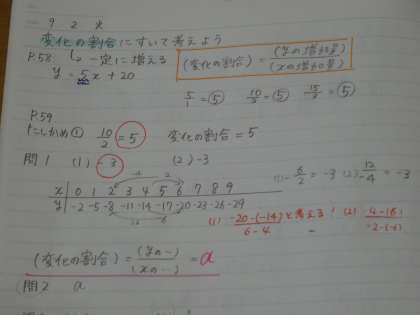 9 2 火
変化の割合について考えよう
P.58 ↳ 一定に増える
(変化の割合) = (yの増加量)/(xの増加量)
y = 5x + 20
5/1 = 5 10/2 = 5 15/3 = 5
P.59
たしかめ① 10/2 = 5 変化の割合 = 5
問1 (1) -3 (2) -3
(1) -6/2 = -3 (2) 12/-4 = -3
x 0 1 2 3 4 5 6 7 8 9
y -2 -5 -8 -11 -14 -17 -20 -23 -26 -29
(1) -20-(-14)/6-4 と考える!
(変化の割合) = (yの…)/(xの…) = a
問2 a